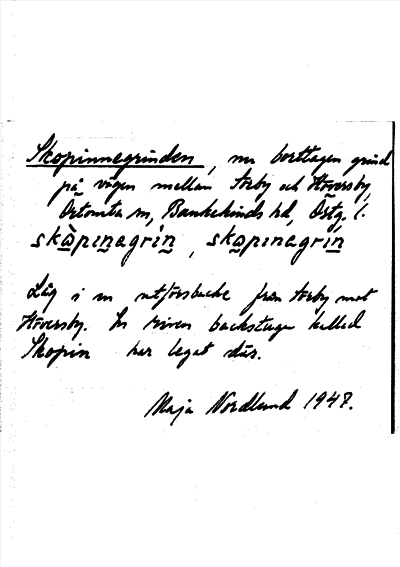 Skopinnegrinden, nu borttagen grind
på vägen mellan Torby och Horvesby,
Örtomta sn, Bankekinds hd, Östg. l.
skɷ̀pi̱nagri̱n, skɷpinagri̱n
Låg i en utförsbacke från Torby mot
Horvesby. En riven backstuga kallad
Skopin har legat där.
Maja Nordlund 1947.